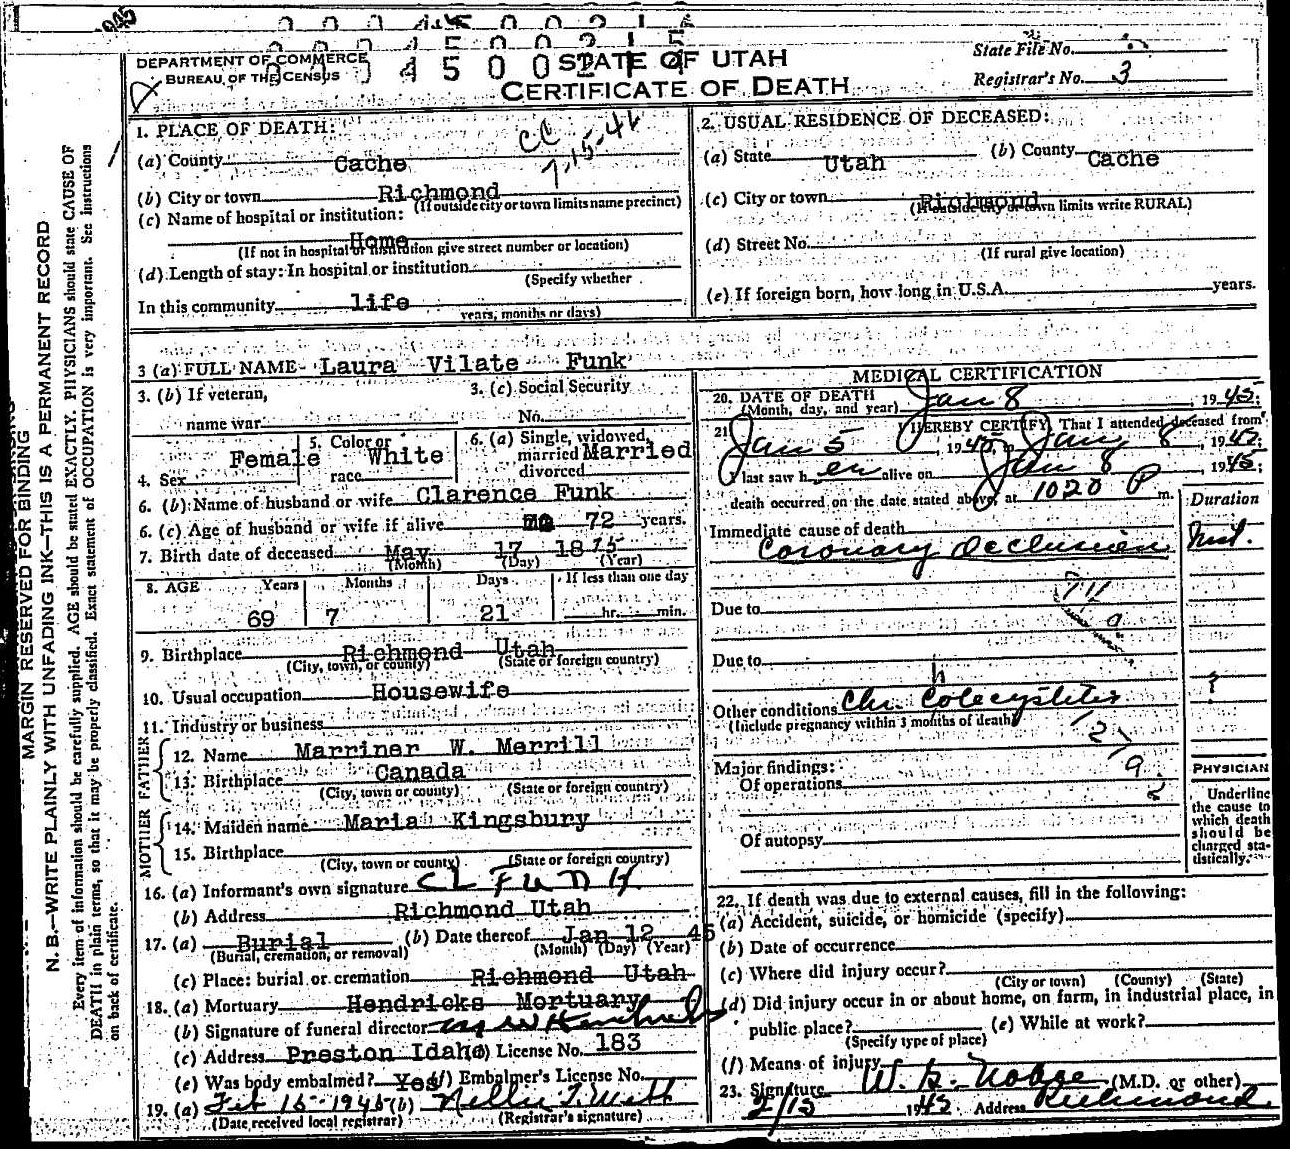 1945
DEPARTMENT OF COMMERCE
BUREAU OF THE CENSUS
STATE OF UTAH
CERTIFICATE OF DEATH
State File No.
Registrar's No. 3
MARGIN RESERVED FOR BINDING
N. B.—WRITE PLAINLY WITH UNFADING INK—THIS IS A PERMANENT RECORD
Every item of information should be carefully supplied. AGE should be stated EXACTLY. PHYSICIANS should state CAUSE OF
DEATH in plain terms, so that it may be properly classified. Exact statement of OCCUPATION is very important. See instructions
on back of certificate.
1. PLACE OF DEATH:
CC
7-15-46
(a) County Cache
(b) City or town Richmond
(If outside city or town limits name precinct)
(c) Name of hospital or institution:
Home
(If not in hospital or institution give street number or location)
(d) Length of stay: In hospital or institution
(Specify whether
In this community life
years, months or days)
2. USUAL RESIDENCE OF DECEASED:
(a) State Utah (b) County Cache
(c) City or town Richmond
(If outside city or town limits write RURAL)
(d) Street No.
(If rural give location)
(e) If foreign born, how long in U.S.A. years.
3 (a) FULL NAME Laura Vilate Funk
3. (b) If veteran,
name war
3. (c) Social Security
No.
4. Sex Female
5. Color or
race White
6. (a) Single, widowed,
married Married
divorced
6. (b) Name of husband or wife Clarence Funk
6. (c) Age of husband or wife if alive 72 years.
7. Birth date of deceased May 17 1875
(Month) (Day) (Year)
8. AGE Years Months Days If less than one day
69 7 21 hr. min.
9. Birthplace Richmond Utah
(City, town, or county) (State or foreign country)
10. Usual occupation Housewife
11. Industry or business
FATHER
12. Name Marriner W. Merrill
13. Birthplace Canada
(City, town or county) (State or foreign country)
MOTHER
14. Maiden name Maria Kingsbury
15. Birthplace
(City, town or county) (State or foreign country)
16. (a) Informant's own signature C L FUNK
(b) Address Richmond Utah
17. (a) Burial (b) Date thereof Jan 12 45
(Burial, cremation, or removal) (Month) (Day) (Year)
(c) Place: burial or cremation Richmond Utah
18. (a) Mortuary Hendricks Mortuary
(b) Signature of funeral director
(c) Address Preston Idaho (d) License No. 183
(e) Was body embalmed? Yes (f) Embalmer's License No.
19. (a) Feb 15 1945 (b)
(Date received local registrar) (Registrar's signature)
MEDICAL CERTIFICATION
20. DATE OF DEATH
(Month, day, and year) Jan 8, 1945;
21. I HEREBY CERTIFY, That I attended deceased from
Jan 5, 1945, to Jan 8, 1945;
I last saw h er alive on Jan 8, 1945;
death occurred on the date stated above, at 1020 P m.
Duration
Immediate cause of death
Coronary Occlusion
Due to
Due to
Other conditions Chr. Colecystitis
h
?
(Include pregnancy within 3 months of death)
127
Major findings:
Of operations
Of autopsy
PHYSICIAN
Underline
the cause to
which death
should be
charged sta-
tistically.
22. If death was due to external causes, fill in the following:
(a) Accident, suicide, or homicide (specify)
(b) Date of occurrence
(c) Where did injury occur?
(City or town) (County) (State)
(d) Did injury occur in or about home, on farm, in industrial place, in
public place? (e) While at work?
(Specify type of place)
(f) Means of injury
23. Signature (M.D. or other)
2/15 1945 Address Richmond